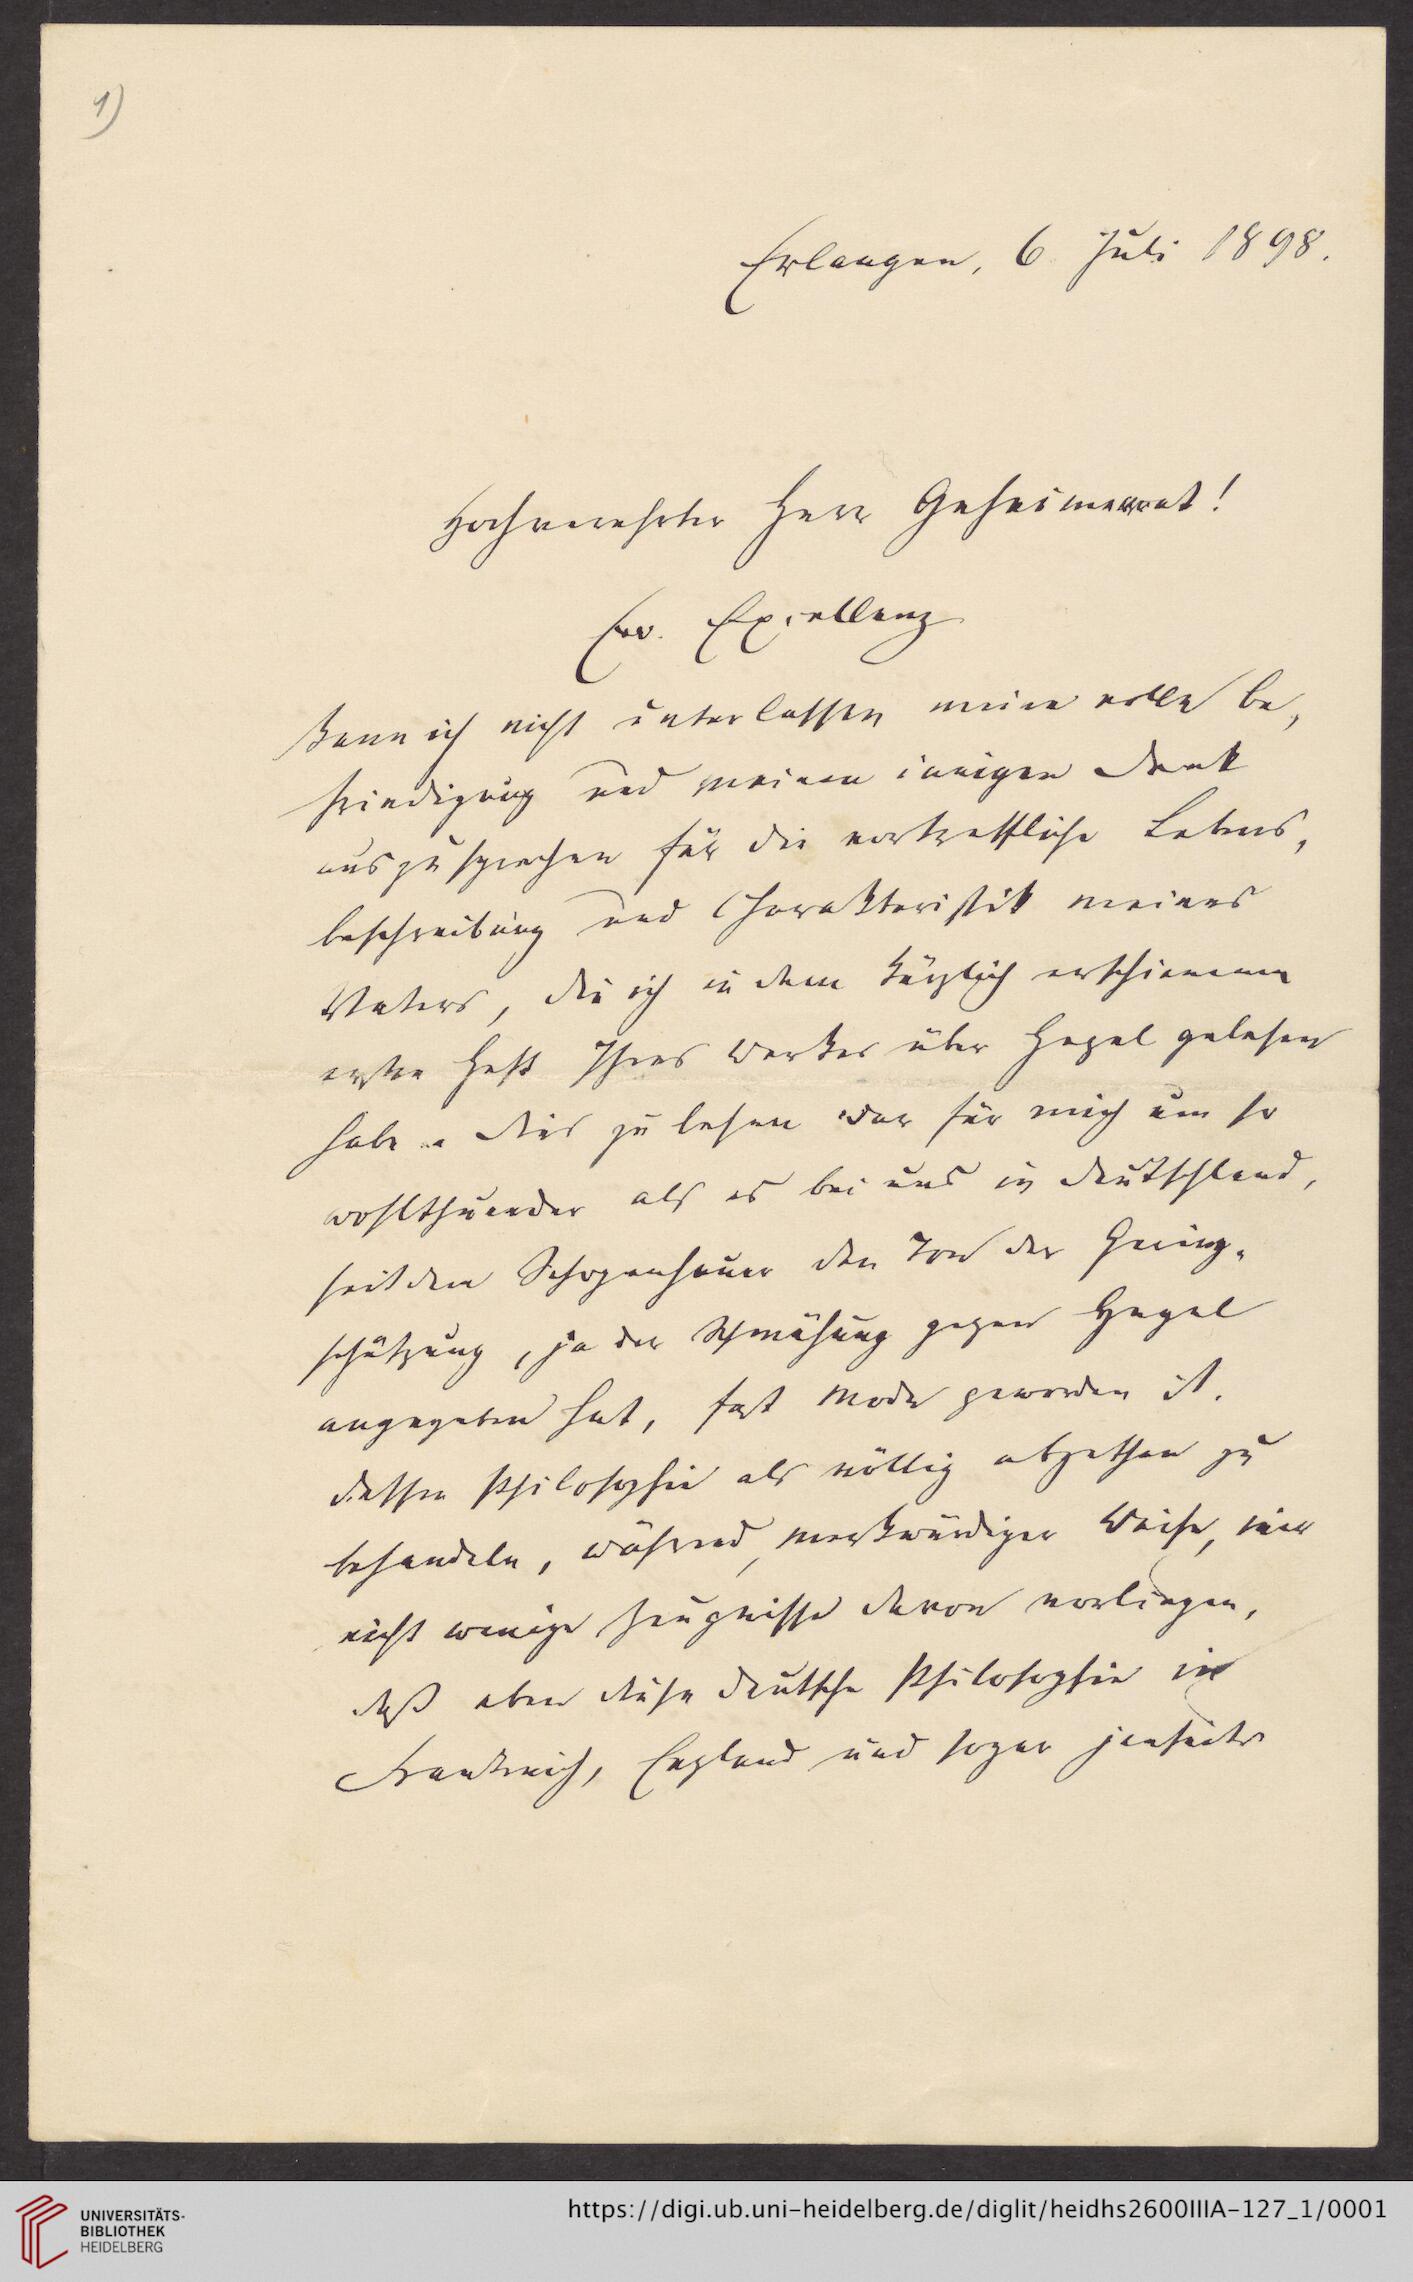 1)
Erlangen, 6 Juli 1898.
Hochverehrter Herr Geheimerrat!
Ew. Excellenz
kann ich nicht unterlassen meine volle Be,
friedigung und meinen innigen Dank
auszusprechen für die vortreffliche Lebens,
beschreibung und Charakteristik meines
Vaters, die ich in dem kürzlich erschienenen
ersten Heft Ihres Werkes über Hegel gelesen
habe. Dies zu lesen war für mich um so
wohlthuender als es bei uns in Deutschland,
seitdem Schopenhauer den Ton der Gering-
schätzung, ja der Schmähung gegen Hegel
angegeben hat, fast Mode geworden ist.
dessen Philosophie als völlig abgethan zu
behandeln, während, merkwürdiger Weise, mir
nicht wenige Zeugnisse davon vorliegen,
daß eben diese deutsche Philosophie in
Frankreich, England und sogar jenseits
UNIVERSITÄTS-
BIBLIOTHEK
HEIDELBERG
https://digi.ub.uni-heidelberg.de/diglit/heidhs2600IIIA-127_1/0001